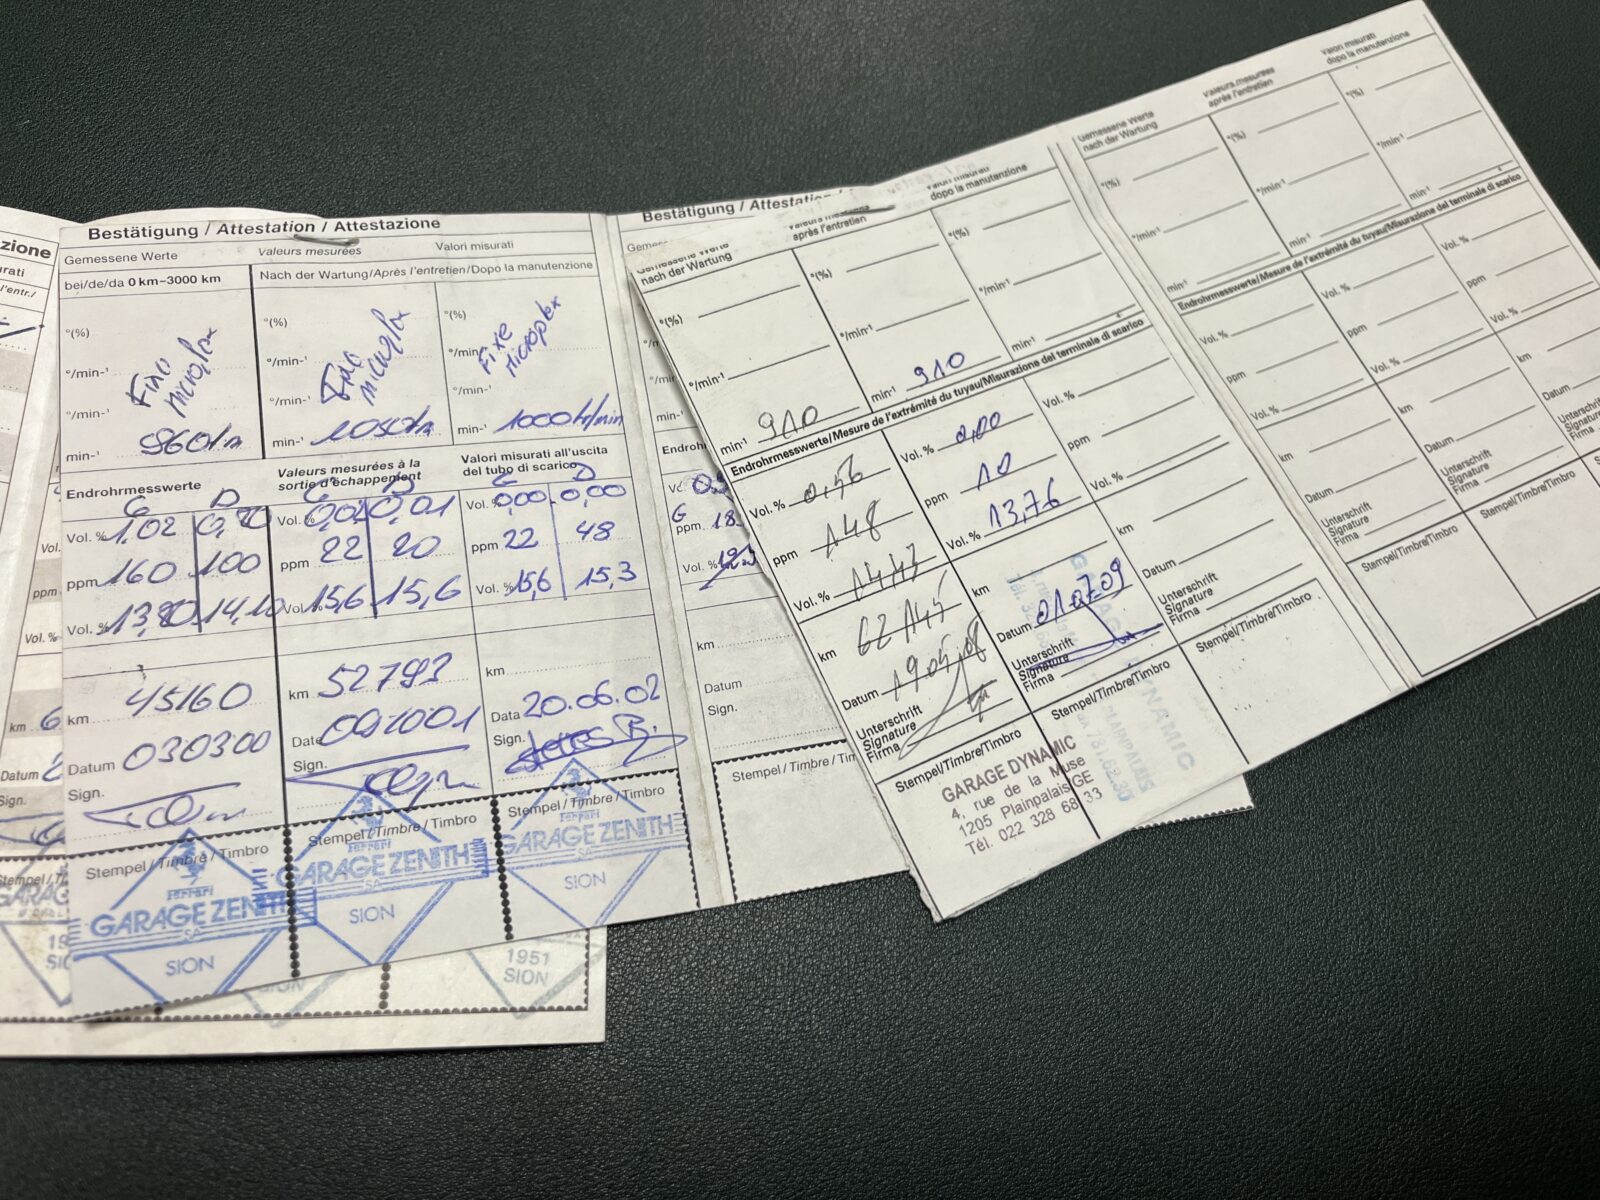 zione
rati
l'entr./
Vol.
Vol. %
km 6
Datum
Sign.
Stempel / T
SION
Bestätigung / Attestation / Attestazione
Gemessene Werte Valeurs mesurées Valori misurati
bei/de/da 0 km–3000 km
Nach der Wartung/Après l'entretien/Dopo la manutenzione
°(%) °(%) °(%)
°/min-¹ °/min-¹ °/min-¹
Fixe
microplex
°/min-¹ °/min-¹
min-¹ 960t/m min-¹ 1050t/m min-¹ 1000t/min
Endrohrmesswerte
Valeurs mesurées à la
sortie d'échappement
Valori misurati all'uscita
del tubo di scarico
G D G D G D
Vol. % 1,02 0,20 Vol. % 0,01 Vol. % 0,00 0,00
ppm 160 100 ppm 22 20 ppm 22 48
Vol. % 13,80 14,10 Vol. % 15,6 15,6 Vol. % 15,6 15,3
km 45160 km 52793 km
Datum 030300 Date 091001 Data 20.06.02
Sign. Sign. Sign.
Stempel / Timbre / Timbro Stempel / Timbre / Timbro Stempel / Timbre / Timbro
Ferrari
GARAGE ZENITH
SA
SION
Ferrari
GARAGE ZENITH
SA
SION
Ferrari
GARAGE ZENITH
SION
1951
SION
Bestätigung / Attestation
°(%)
min-¹
Endrohr
G
ppm 18
Vol. %
km
Datum
Sign.
Stempel / Timbre / Ti
Gemessene Werte
nach der Wartung
Valeurs mesurées
après l'entretien
Valori misurati
dopo la manutenzione
°(%) °(%) °(%)
°/min-¹ °/min-¹ °/min-¹
min-¹ 910 min-¹ 910 min-¹
Endrohrmesswerte/Mesure de l'extrémité du tuyau/Misurazione del terminale di scarico
Vol. % 0,56 Vol. % 0,00 Vol. %
ppm 148 ppm 10 ppm
Vol. % 14,43 Vol. % 13,76 Vol. %
km 62145 km km
Datum 19.05.08 Datum 01.07.09 Datum
Unterschrift
Signature
Firma
Unterschrift
Signature
Firma
Unterschrift
Signature
Firma
Stempel/Timbre/Timbro Stempel/Timbre/Timbro Stempel/Timbre/Timbro
GARAGE DYNAMIC
4, rue de la Muse
1205 Plainpalais/GE
Tél. 022 328 68 33
Gemessene Werte
nach der Wartung
Valeurs mesurées
après l'entretien
Valori misurati
dopo la manutenzione
°(%) °(%) °(%)
°/min-¹ °/min-¹ °/min-¹
min-¹ min-¹ min-¹
Endrohrmesswerte/Mesure de l'extrémité du tuyau/Misurazione del terminale di scarico
Vol. % Vol. % Vol. %
ppm ppm ppm
Vol. % Vol. % Vol. %
km km km
Datum Datum Datum
Unterschrift
Signature
Firma
Unterschrift
Signature
Firma
Unterschrift
Signature
Firma
Stempel/Timbre/Timbro Stempel/Timbre/Timbro Stempel